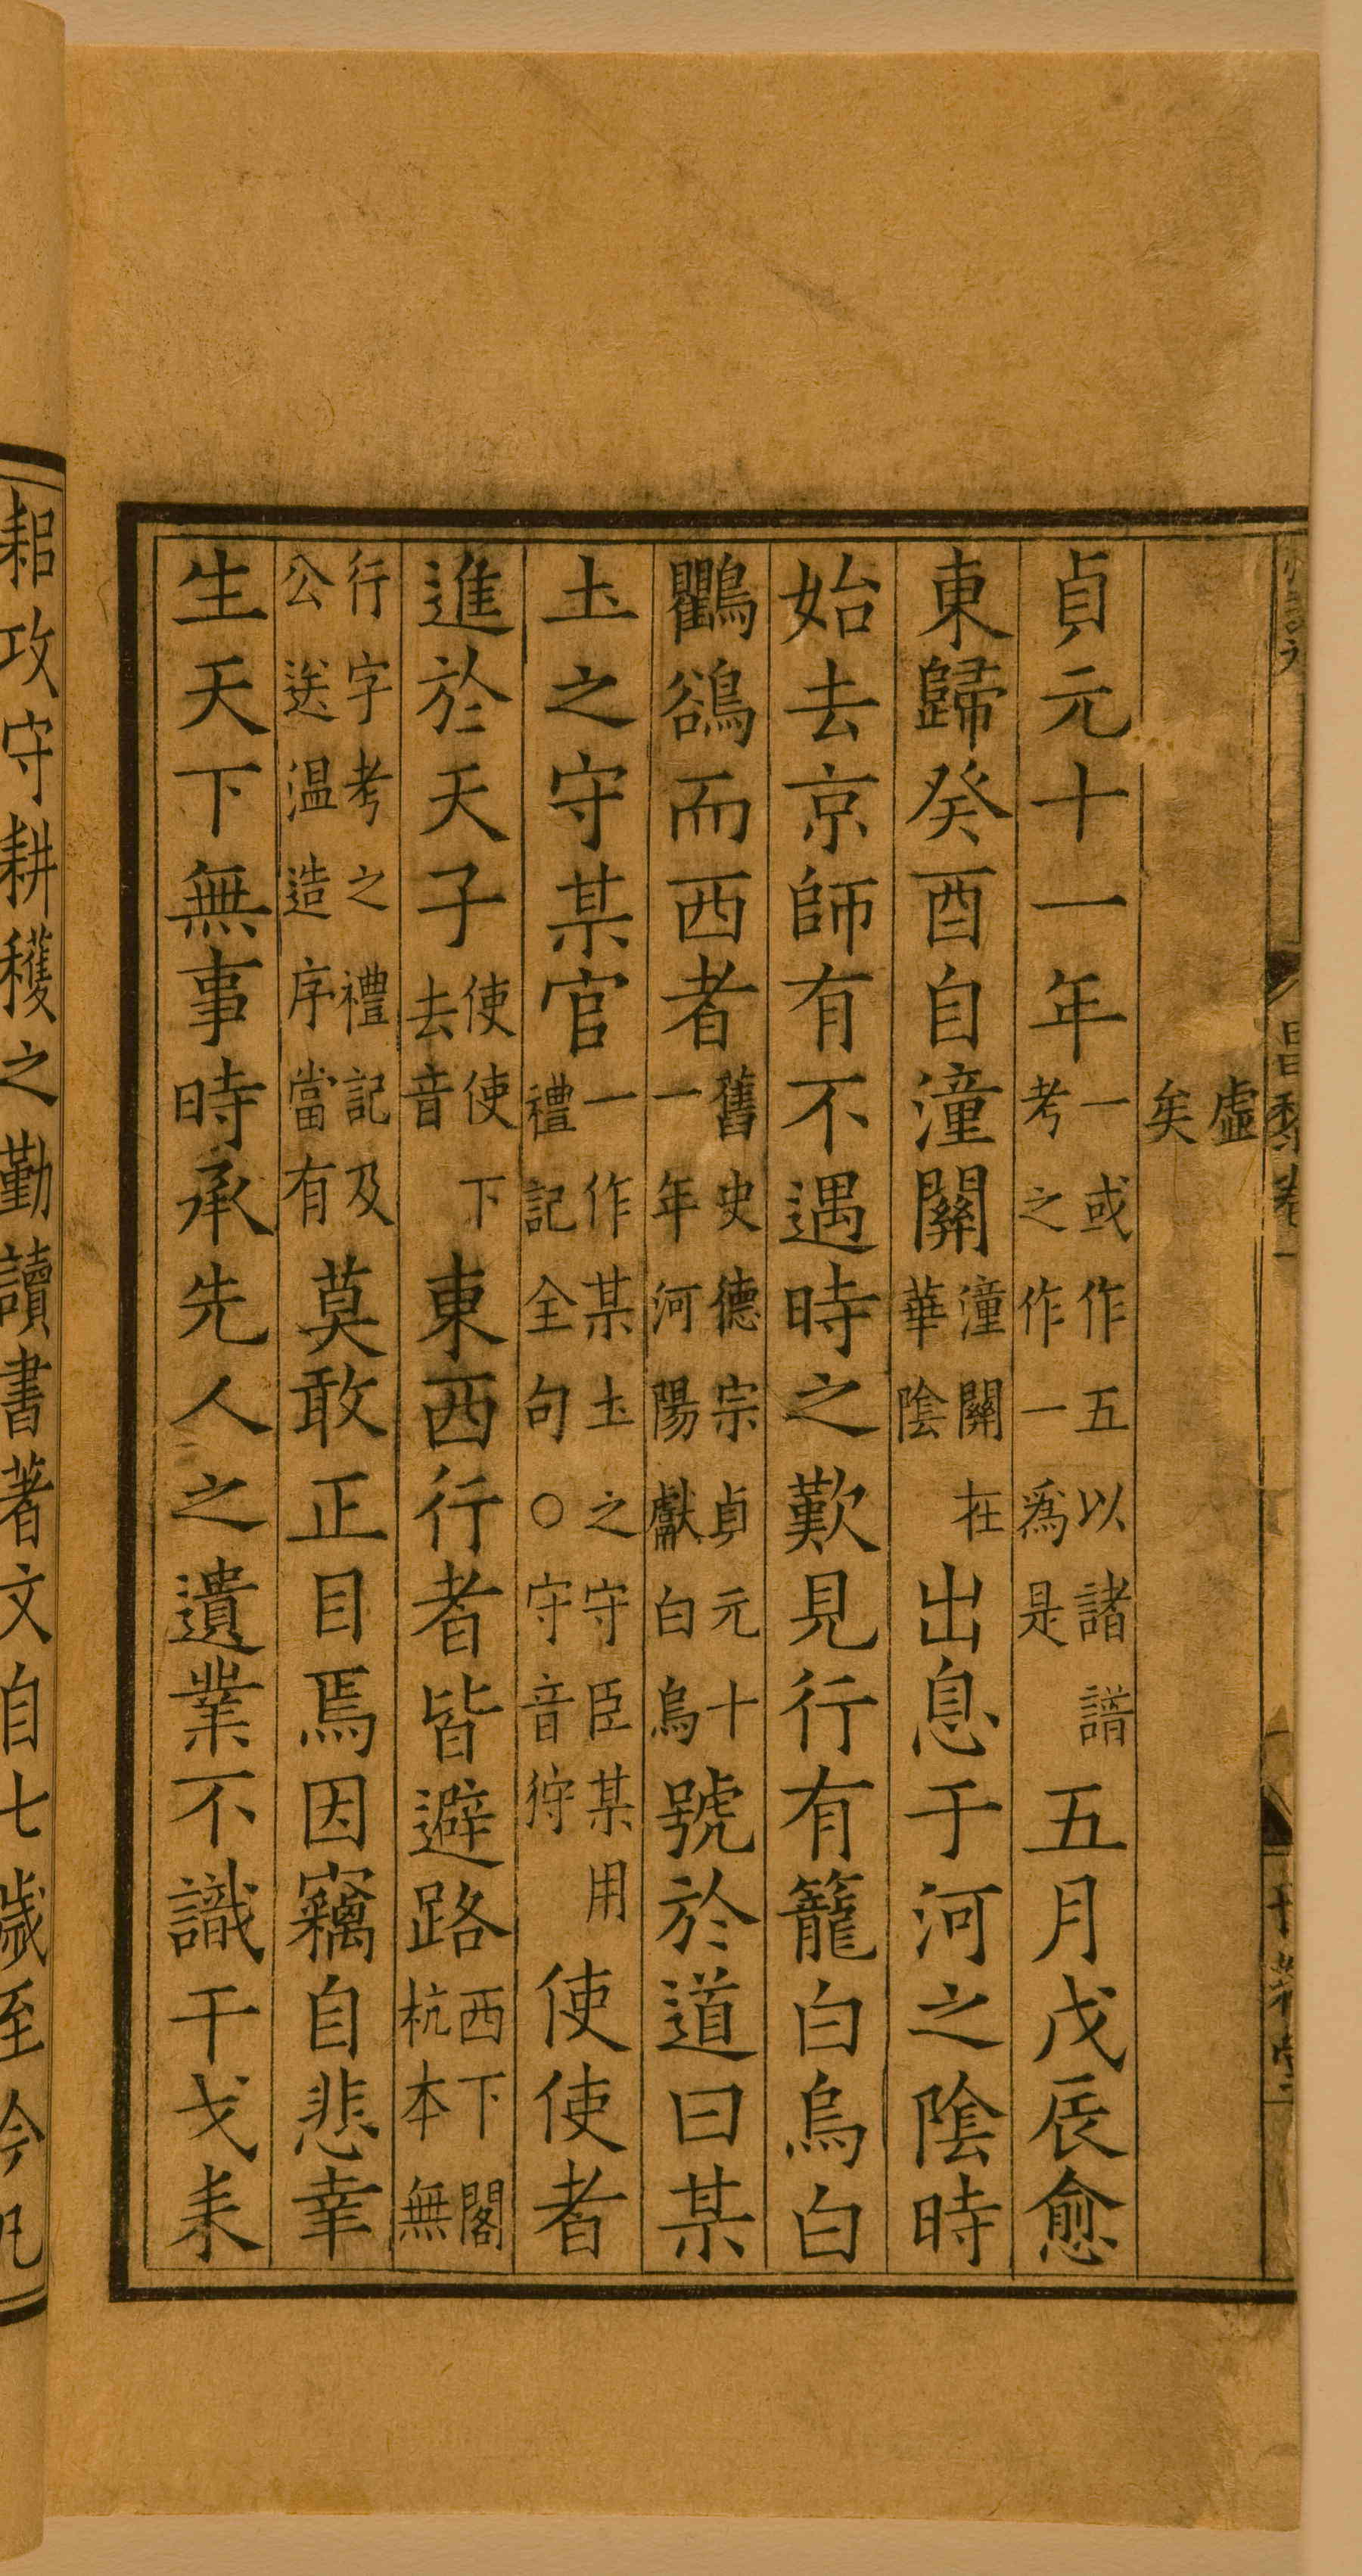 虛矣
貞元十一年一或作五以諸譜考之作一爲是五月戊辰愈
東歸癸酉自潼關潼關在華陰出息于河之陰時
始去京師有不遇時之歎見行有籠白烏白
鸜鵒而西者舊史德宗貞元十一年河陽獻白烏號於道曰某
土之守某官一作某土之守臣某用禮記全句○守音狩使使者
進於天子使使下去音東西行者皆避路西下閣杭本無
行字考之禮記及公送溫造序當有莫敢正目焉因竊自悲幸
生天下無事時承先人之遺業不識干戈耒
耜攻守耕穫之勤讀書著文自七歲至今凡